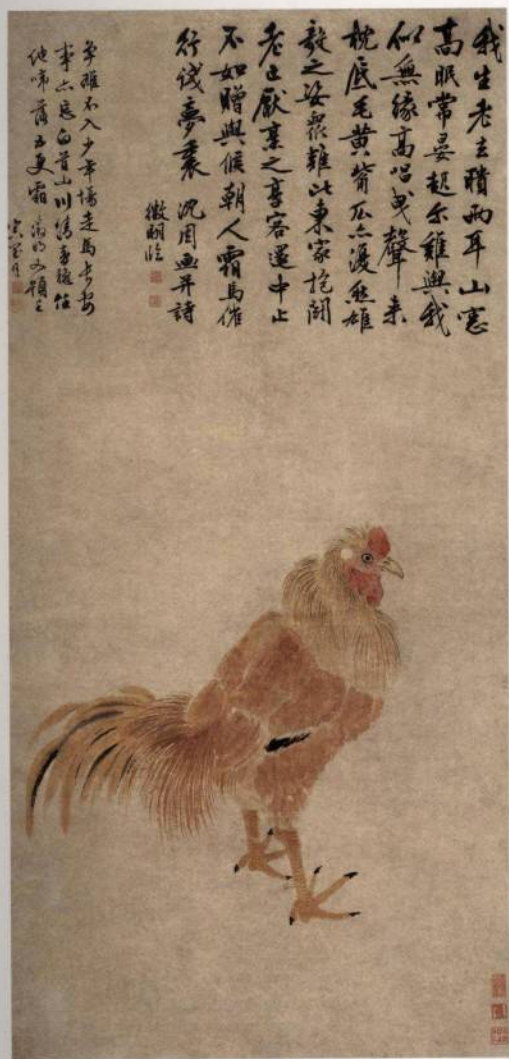 我生老去聵兩耳山窓
高眠常晏起尔雞與我
似無緣高唱曳聲来
枕底毛黄觜爪亦復然雄
毅之姿衆難比東家抱關
老已厭烹之享客還中止
不如贈與候朝人霜馬催
行伐夢裏 沈周画并詩
徵明臨
爭雄不入少年塲走馬長安
事亦忘白首山川情
他啼落五更霜